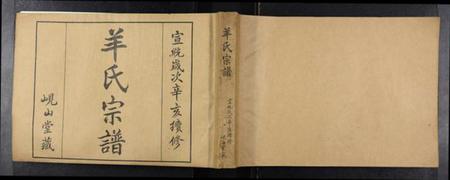 宣統歲次辛亥續修
羊氏宗譜
峴山堂藏
羊氏宗譜